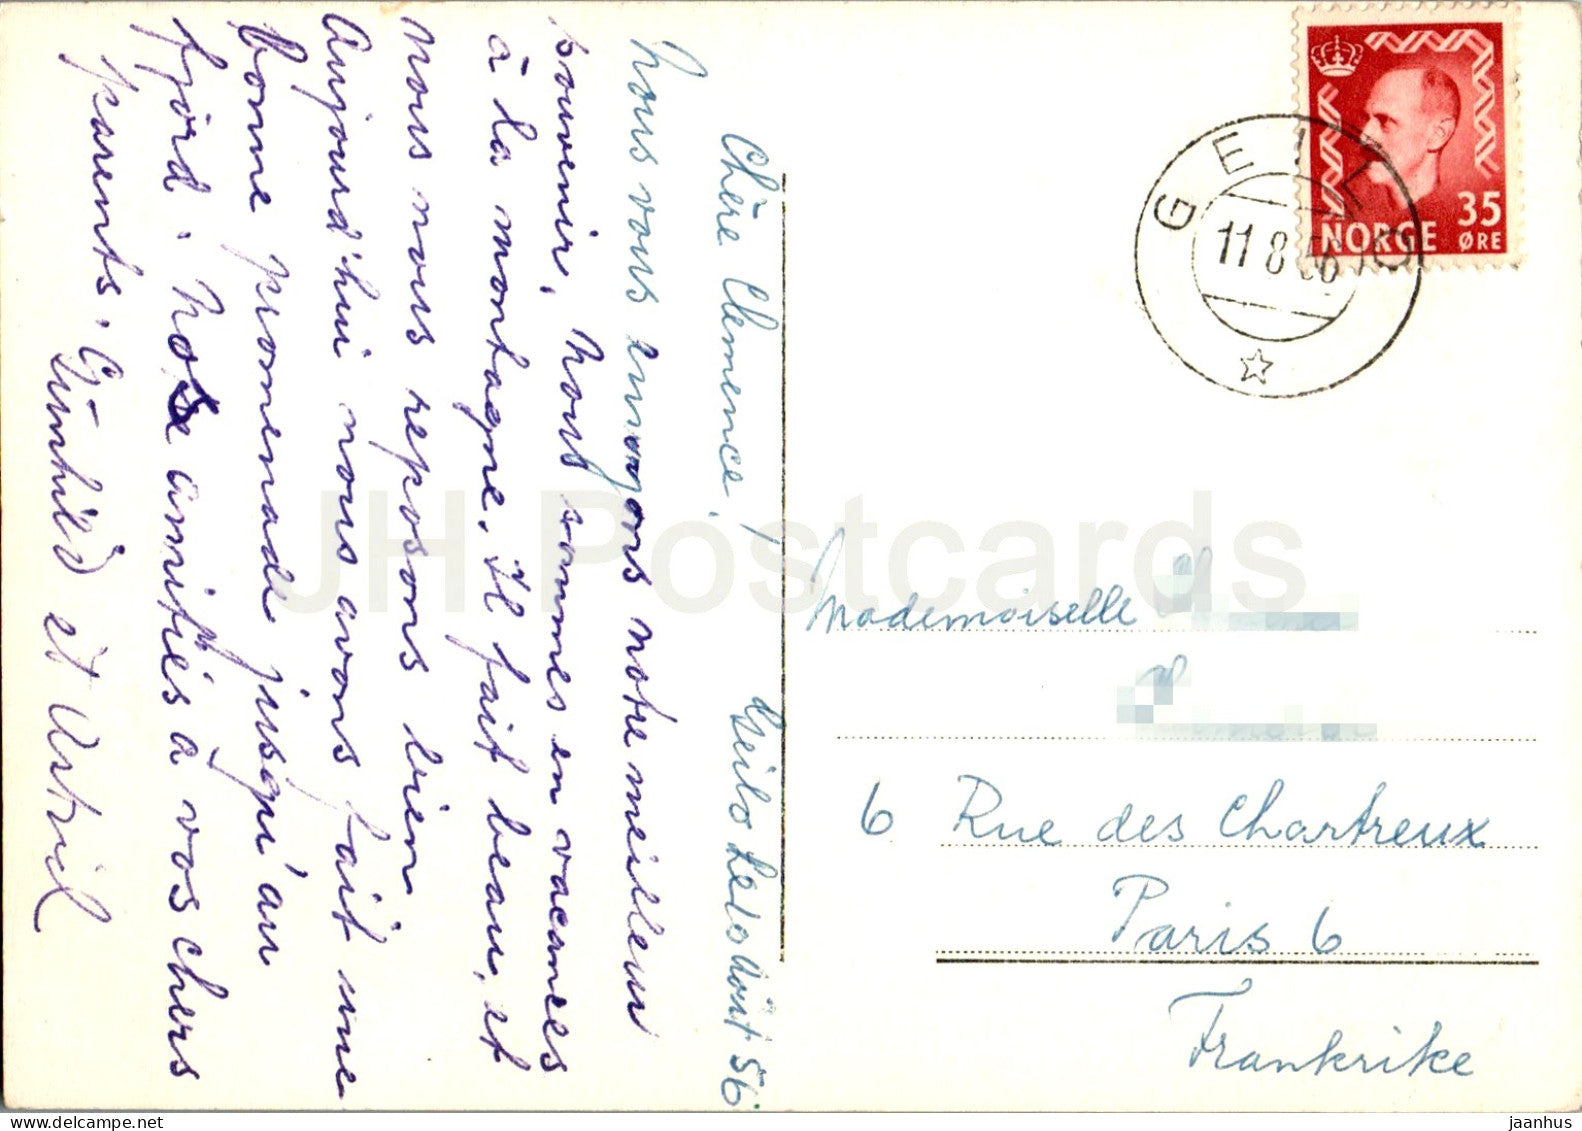 Geilo le 10 Août 56
Chère Clemence,
Nous vous envoyons notre meilleur
souvenir. Nous sommes en vacances
à la montagne. Il fait beau, et
nous nous reposons bien
Aujourd'hui nous avons fait une
bonne promenade jusqu'au
fjord. Nos amitiés à vos chers
parents. Gunhild et Astrid
NORGE
35
ØRE
GEILO
11 8 56
Mademoiselle
6 Rue des Chartreux
Paris 6
Frankrike
JH Postcards
jaanhus
www.delcampe.net